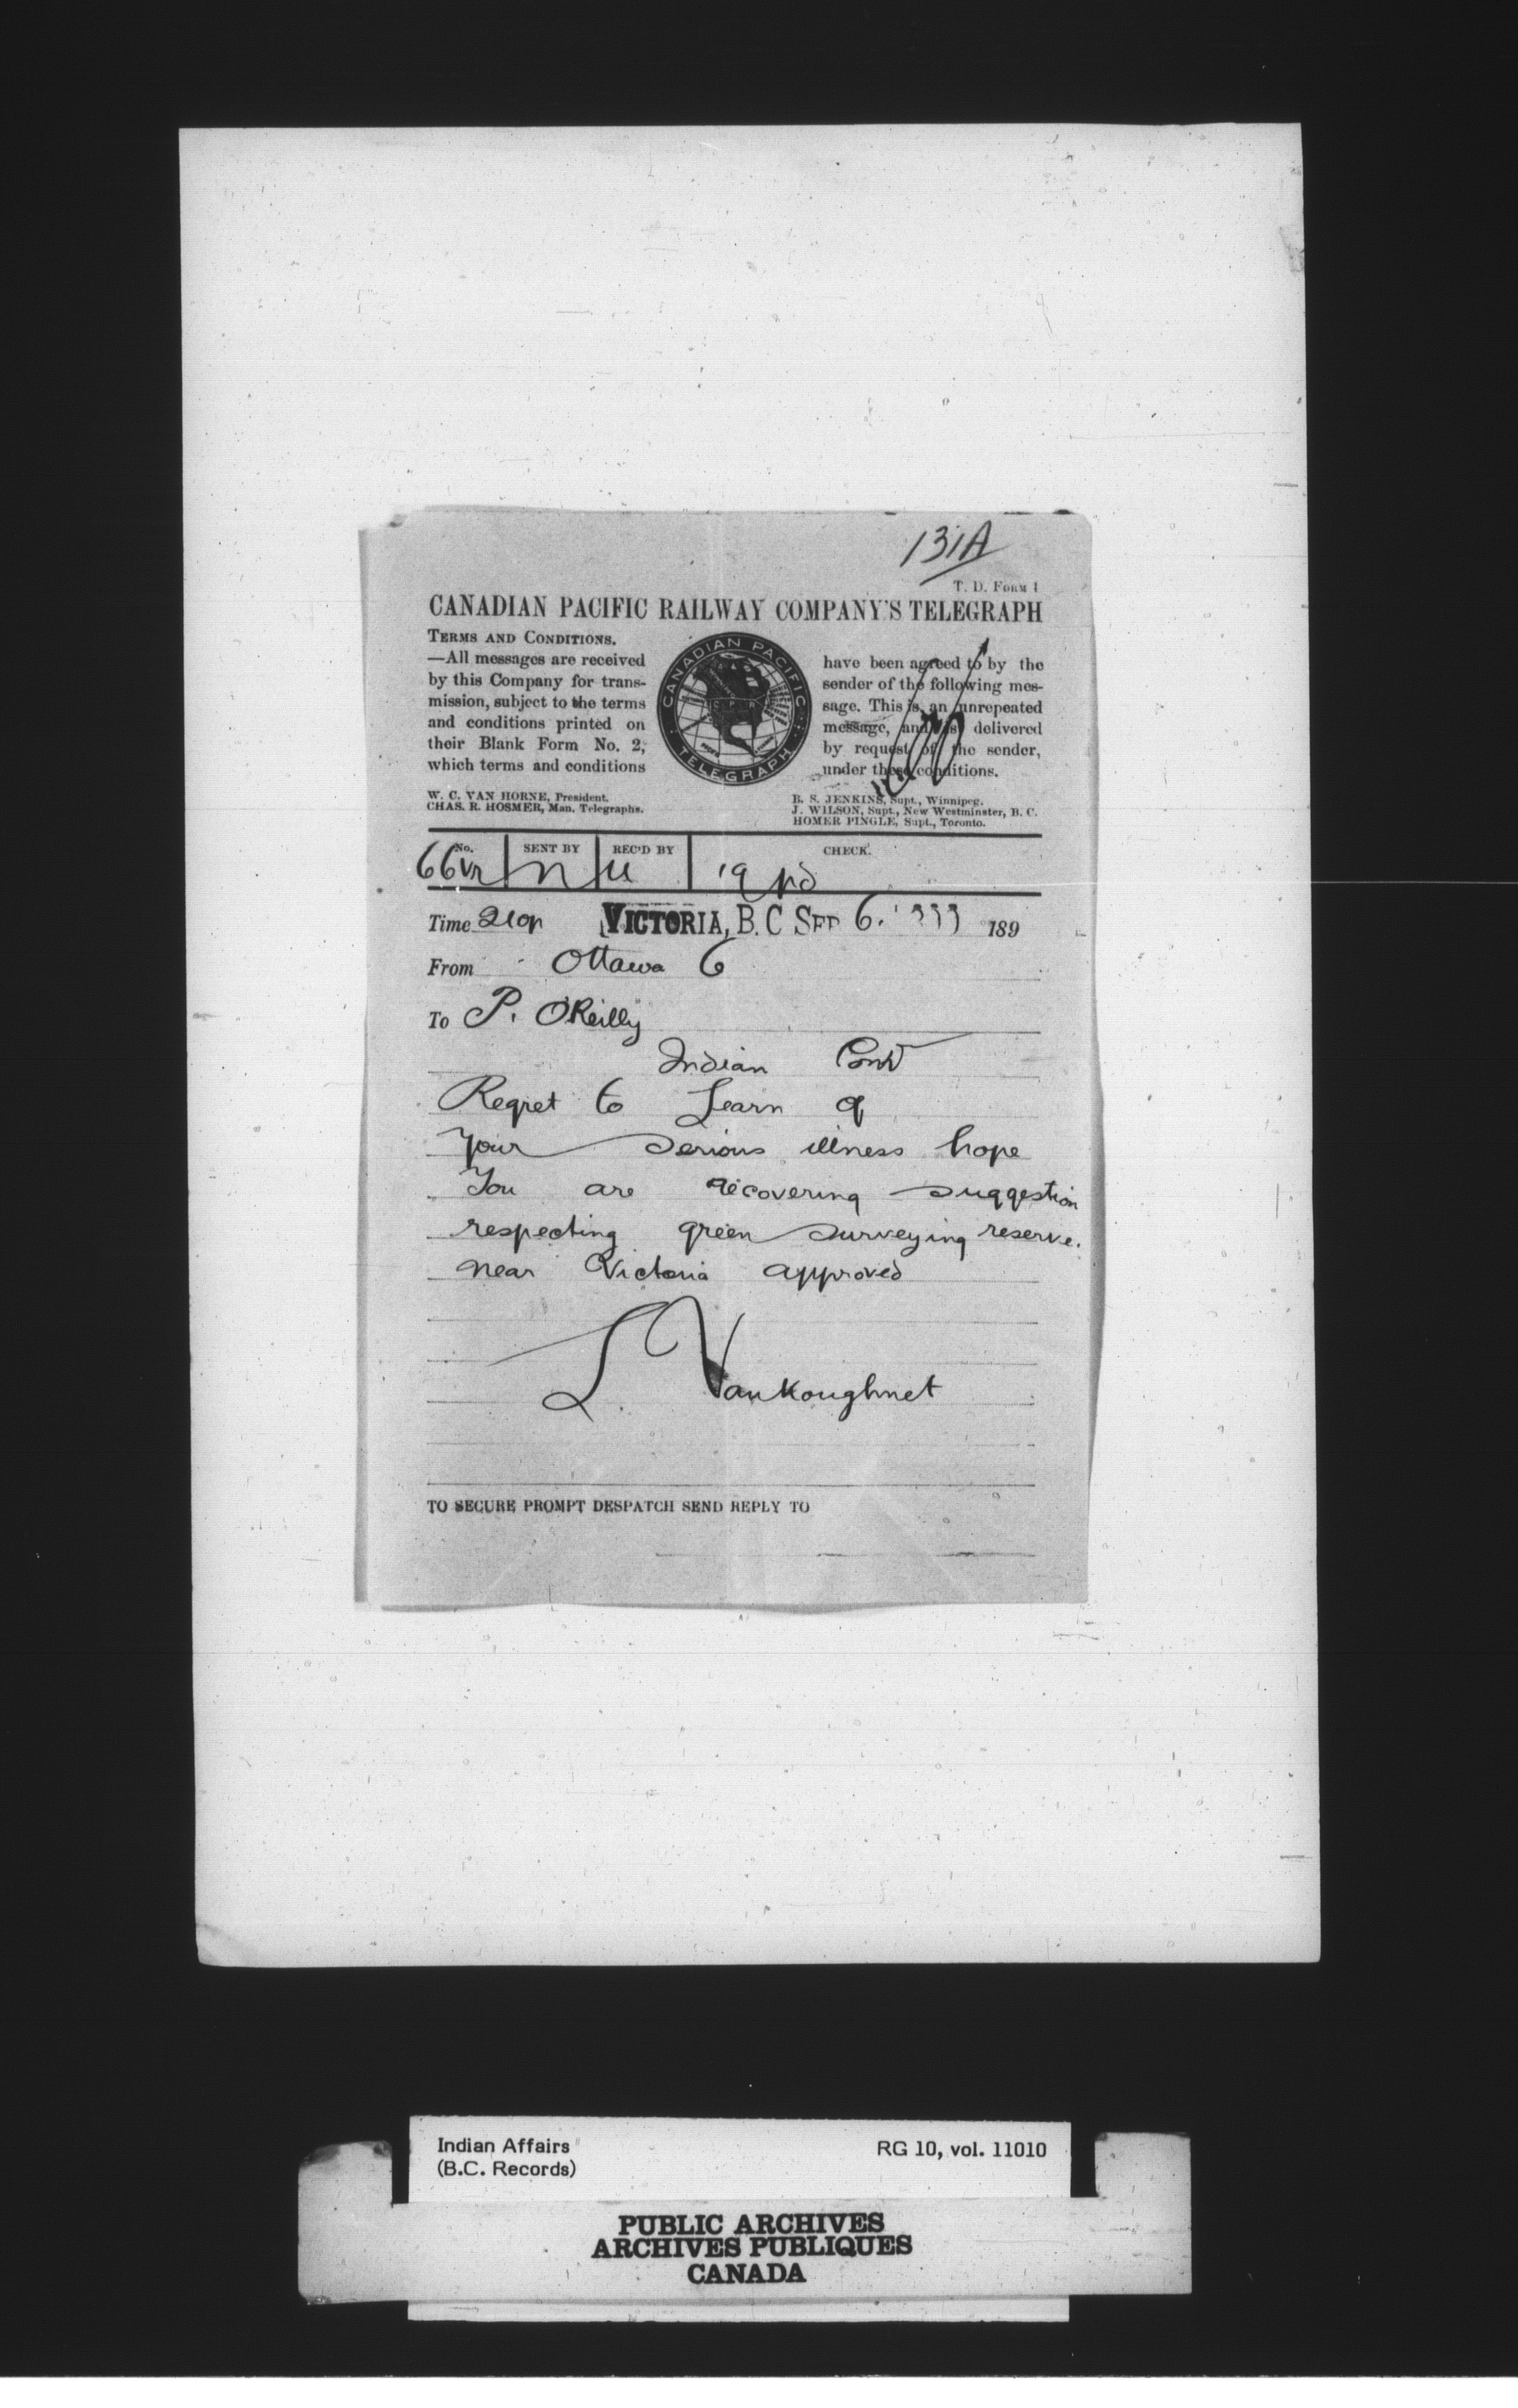 131A
T. D. FORM 1
CANADIAN PACIFIC RAILWAY COMPANY'S TELEGRAPH
TERMS AND CONDITIONS.
—All messages are received
by this Company for trans-
mission, subject to the terms
and conditions printed on
their Blank Form No. 2,
which terms and conditions
CANADIAN PACIFIC
TELEGRAPH
have been agreed to by the
sender of the following mes-
sage. This is an unrepeated
message, and is delivered
by request of the sender,
under these conditions.
W. C. VAN HORNE, President.
CHAS. R. HOSMER, Man. Telegraphs.
B. S. JENKINS, Supt., Winnipeg.
J. WILSON, Supt., New Westminster, B. C.
HOMER PINGLE, Supt., Toronto.
No. SENT BY REC'D BY CHECK.
66 n 19
Time VICTORIA, B.C SEP 6. 189
From Ottawa 6
To P. O'Reilly
Indian
Regret to Learn of
Your serious illness hope
You are recovering suggestion
respecting green surveying reserve.
near Victoria approved
L Vankoughnet
TO SECURE PROMPT DESPATCH SEND REPLY TO
Indian Affairs RG 10, vol. 11010
(B.C. Records)
PUBLIC ARCHIVES
ARCHIVES PUBLIQUES
CANADA